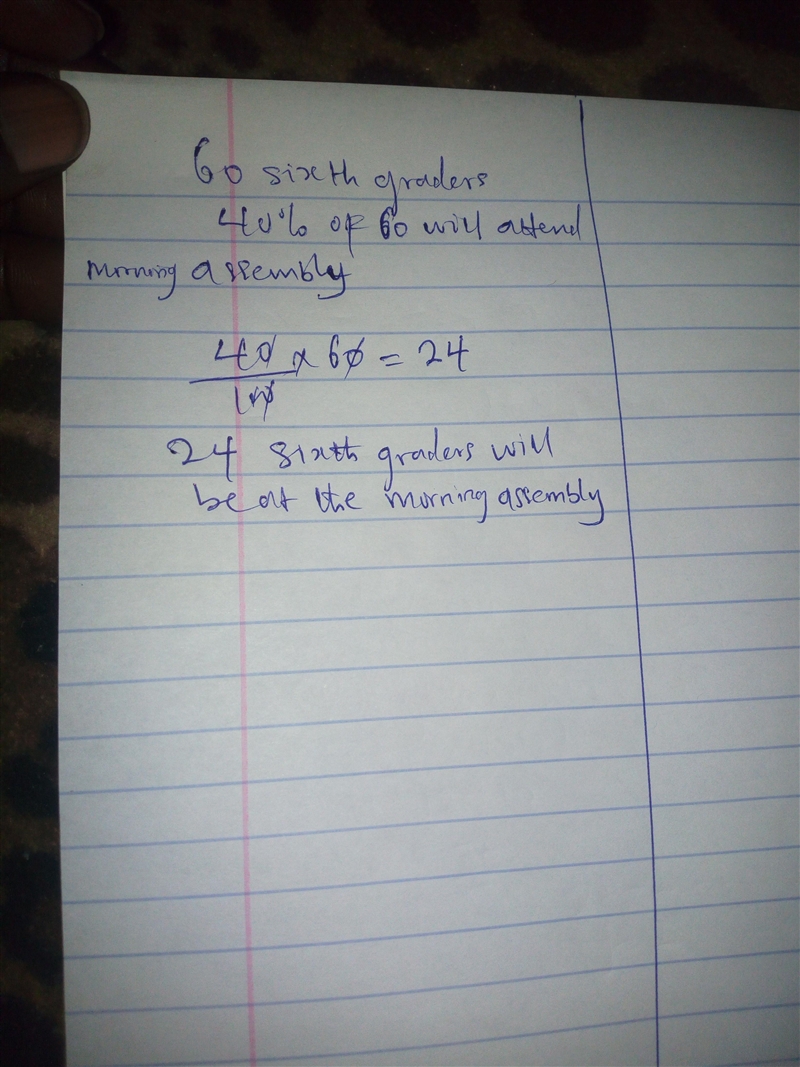 60 sixth graders
40% of 60 will attend
morning assembly
40 x 60 = 24
100
24 sixth graders will
be at the morning assembly